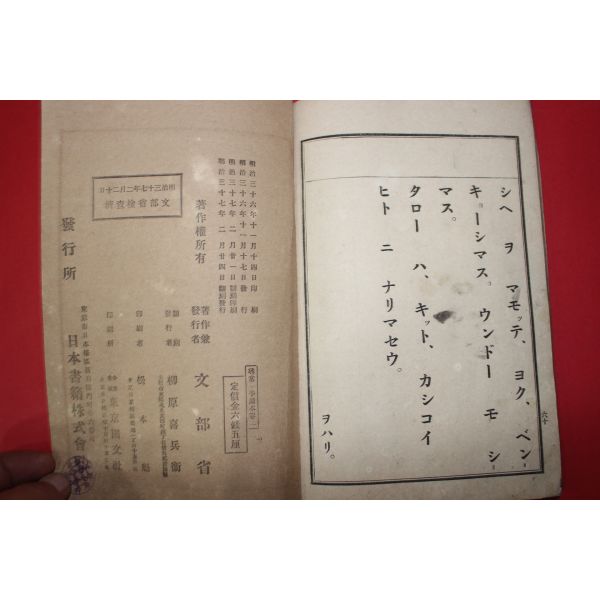 シヘ ヲ マモッテ、 ヨク、 ベン
キョーシマス。 ウンドー モ シ
マス。
タロー ハ、 キット、 カシコイ
ヒト ニ ナリマセウ。
ヲハリ。
六十
明治三十六年十一月十四日印刷
明治三十六年十一月十七日發行
明治三十七年二月廿一日翻刻印刷
明治三十七年二月廿四日翻刻發行
明治三十七年二月二十日
文部省檢査濟
著作權所有
定價金六錢五厘
著作兼
發行者
文部省
翻刻
發行者
柳原喜兵衞
印刷者
印刷所
發行所
日本書籍株式會